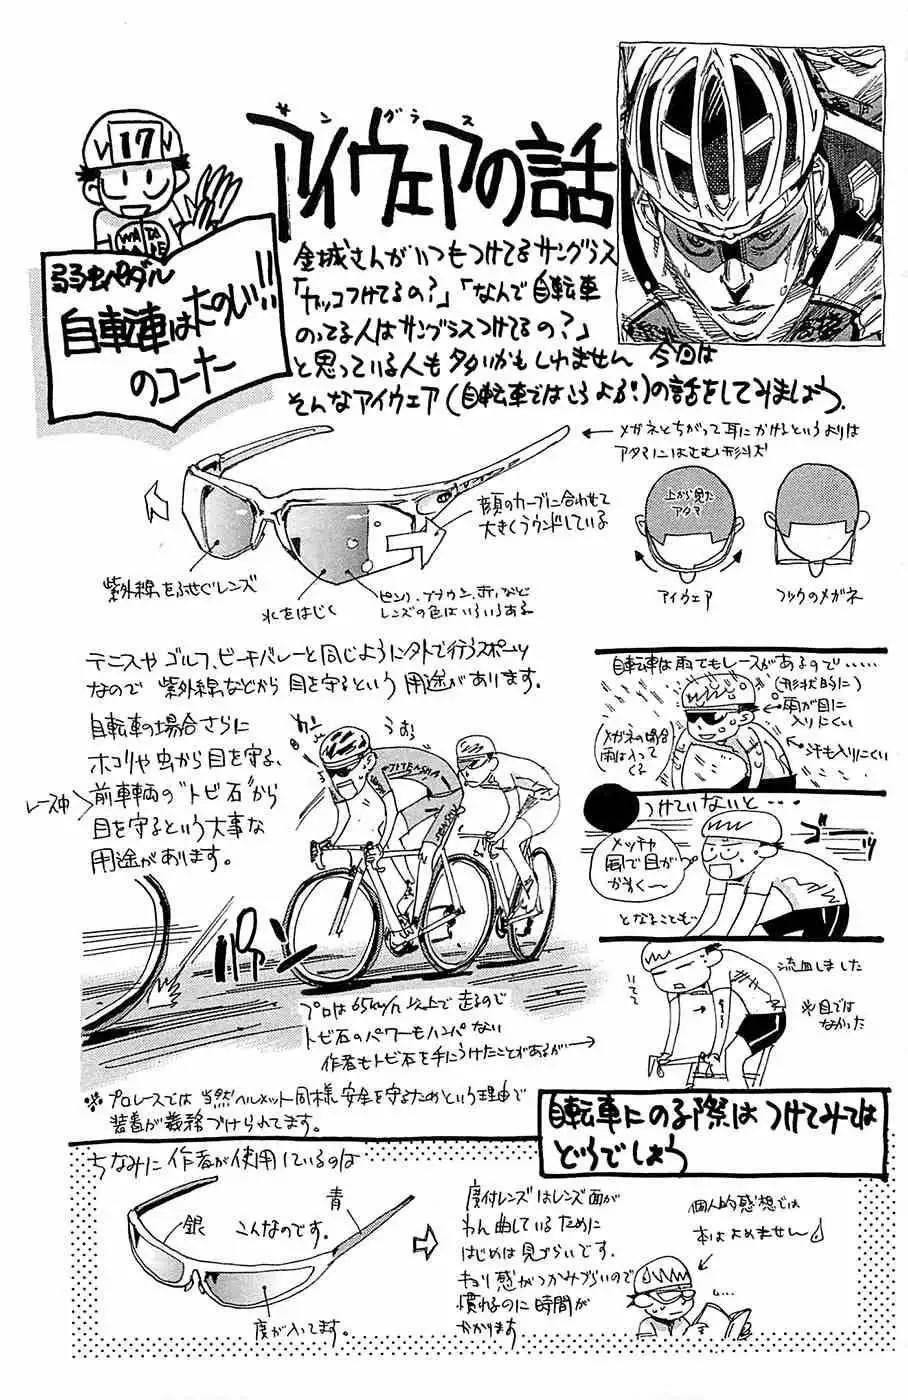 17
WATA
NABE
弱虫ペダル
自転車はたのしい!!
のコーナー
サングラス
アイウェアの話
金城さんがいつもつけてるサングラス
「カッコつけてるの?」「なんで自転車
のってる人はサングラスつけてるの?」
と思っている人も多いかもしれません 今回は
そんなアイウェア(自転車ではこうよぶ!)の話をしてみましょう.
←メガネとちがって耳にかけるというよりは
アタマにはさむ形状
顔のカーブに合わせて
大きくラウンドしている
紫外線をふせぐレンズ
水をはじく
ピンク、ブラウン、赤、など
レンズの色はいろいろある
上から見た
アタマ
アイウェア
フツウのメガネ
テニスや ゴルフ、ビーチバレーと同じように外で行うスポーツ
なので 紫外線などから 目を守るという 用途があります.
自転車の場合さらに
ホコリや虫から目を守る、
レース中
前車輌の"トビ石"から
目を守るという大事な
用途があります。
カンッ
うお
プロは65km/h以上で走るので
トビ石のパワーもハンパない
作者もトビ石を手にうけたことがあるが→
※プロレースでは 当然ヘルメット同様 安全を守るためという理由で
装着が義務づけられてます。
自転車は雨でもレースがあるので‥‥‥
(形状的に)
雨が目に
入りにくい
(メガネの場合
雨は入って
くる
汗も入りにくい
つけていないと‥‥
メッチャ
風で目が
かわく〜
ゴーッ
となることも‥
いてて
流血しました
※目では
なかった
自転車にのる際は つけてみては
どうでしょう
ちなみに 作者が使用しているのは
銀
こんなのです.
青
度が入ってます。
度付レンズはレンズ面が
わん曲しているために
はじめは見づらいです.
キョリ感がつかみづらいので
慣れるのに時間が
かかります
個人的感想では
本はよめません